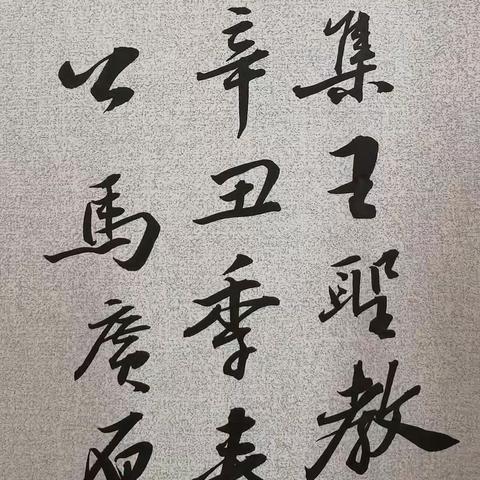 集王聖教
辛丑季春
公馬廣